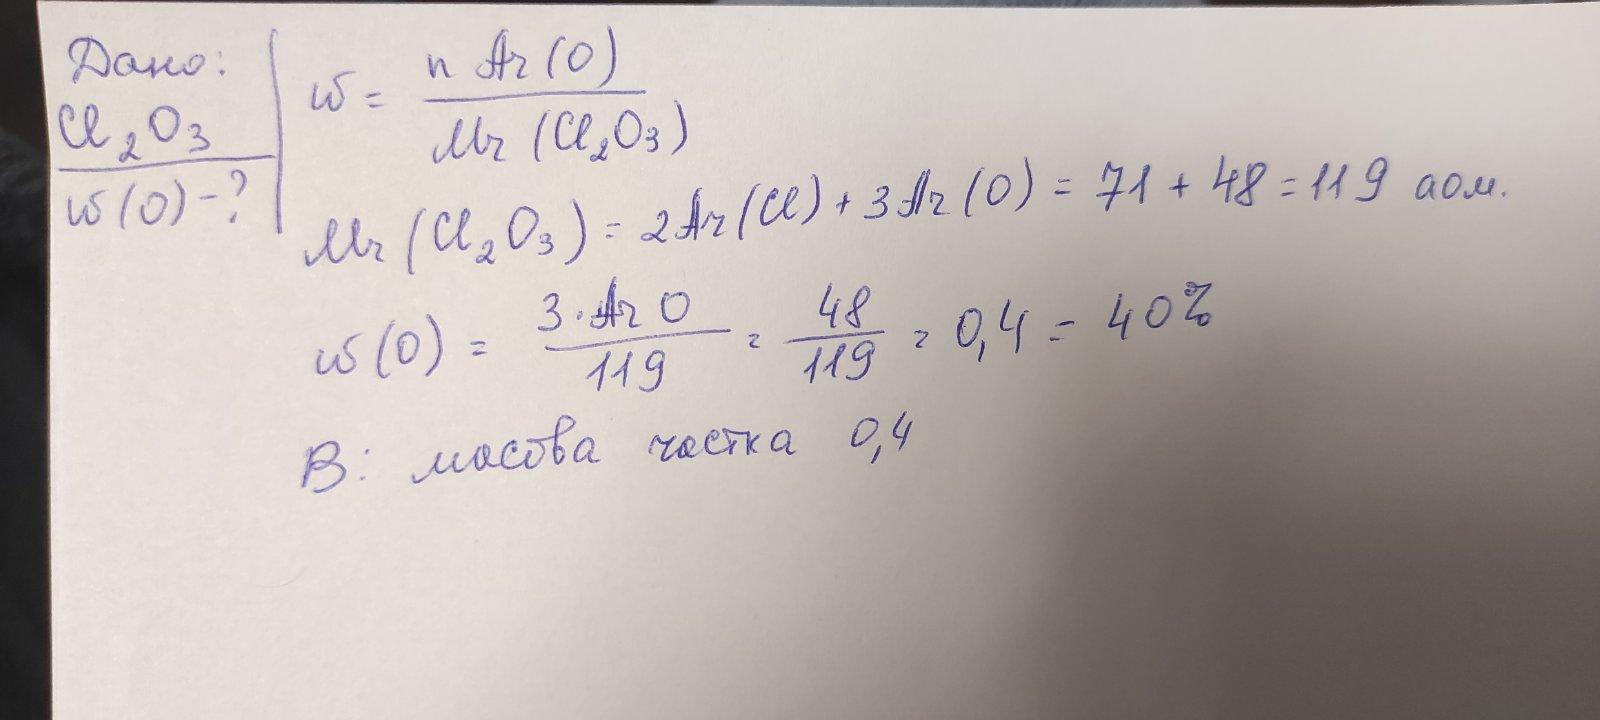 Дано:
Cl₂O₃
w(O)-?
w = n Ar(O) / Mr(Cl₂O₃)
Mr(Cl₂O₃) = 2Ar(Cl) + 3Ar(O) = 71 + 48 = 119 аом.
w(O) = 3·Ar O / 119 = 48 / 119 = 0,4 = 40%
В: масова частка 0,4